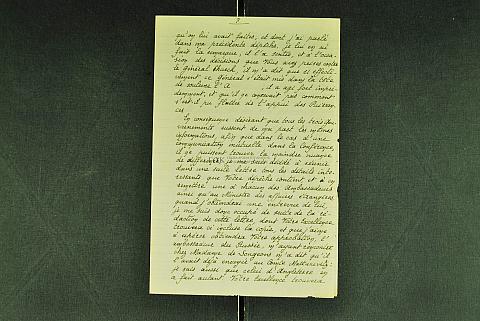 qu'on lui avait faites, et dont j'ai parlé
dans ma précédente dépêche, je lui en ai
fait la remarque, il l'a sentie, et à l'occa-
sion des décisions que Vous avez prises contre
le général Church, il m'a dit que si effecti-
vement ce général s'était mis dans la tête
de soulever l'A il a agi fort impru-
demment, et qu'il ne concevait pas comment
s'est-il pu flatter de l'appui des Puissan-
ces.
En conséquence désirant que tous les trois Gou-
vernements eussent de ma part les mêmes
informations, afin que dans le cas d'une
communication mutuelle dans la Conférence,
il ne puissent trouver la moindre nuance
de différence, je me suis décidé à réunir
dans une seule lettre tous les détails inté-
ressants que Votre dépêche contient, et à en
remettre une à chacun des Ambassadeurs
ainsi qu'au Ministre des affaires étrangères
quand j'obtiendrai une entrevue de lui,
je me suis donc occupé de suite de la ré-
daction de cette lettre, dont Votre Excellence
trouvera ci incluse la copie, et que j'aime
à espérer obtiendra Votre approbation, l'
ambassadeur de Russie, m'ayant rencontré
chez Madame de m'a dit qu'il
l'avait déjà envoyée au Comte
je sais aussi que celui d'Angleterre en
a fait autant. Votre Excellence trouvera